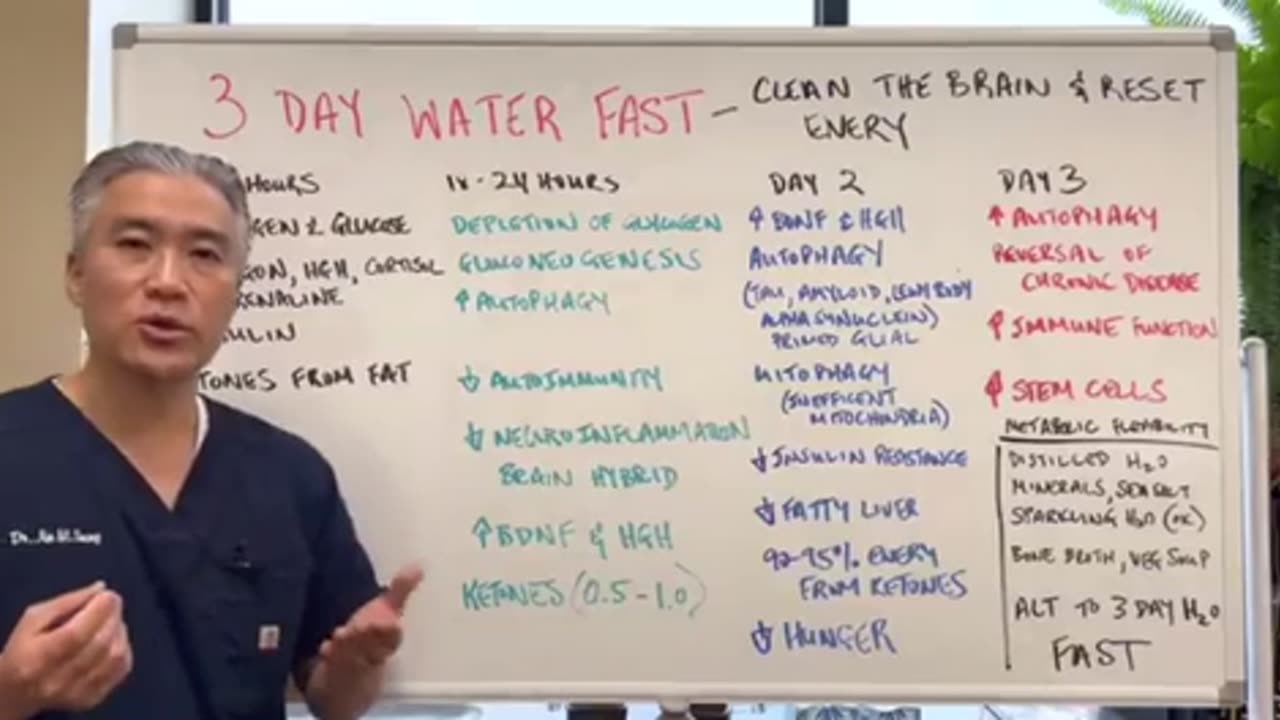 3 DAY WATER FAST - CLEAN THE BRAIN & RESET
ENERY
HOURS
GEN & GLUCOSE
GON, HGH, CORTISOL
RENALINE
ULIN
TONES FROM FAT
18-24 HOURS
DEPLETION OF GLYCOGEN
GLUCONEOGENESIS
↑ AUTOPHAGY
↓ AUTOIMMUNITY
↓ NEUROINFLAMMATION
BRAIN HYBRID
↑ BDNF & HGH
KETONES (0.5-1.0)
DAY 2
↑ BDNF & HGH
AUTOPHAGY
(TAU, AMYLOID, LEWY BODY
ALPHA SYNUCLEIN)
PRIMED GLIAL
MITOPHAGY
(INEFFICENT
MITOCHONDRIA)
↓ INSULIN RESISTANCE
↓ FATTY LIVER
92-95% ENERY
FROM KETONES
↓ HUNGER
DAY 3
↑ AUTOPHAGY
REVERSAL OF
CHRONIC DISEASE
↑ IMMUNE FUNCTION
↑ STEM CELLS
METABOLIC FLEXIBILITY
DISTILLED H2O
MINERALS, SEA SALT
SPARKLING H2O (OK)
BONE BROTH, VEG SOUP
ALT TO 3 DAY H2O
FAST